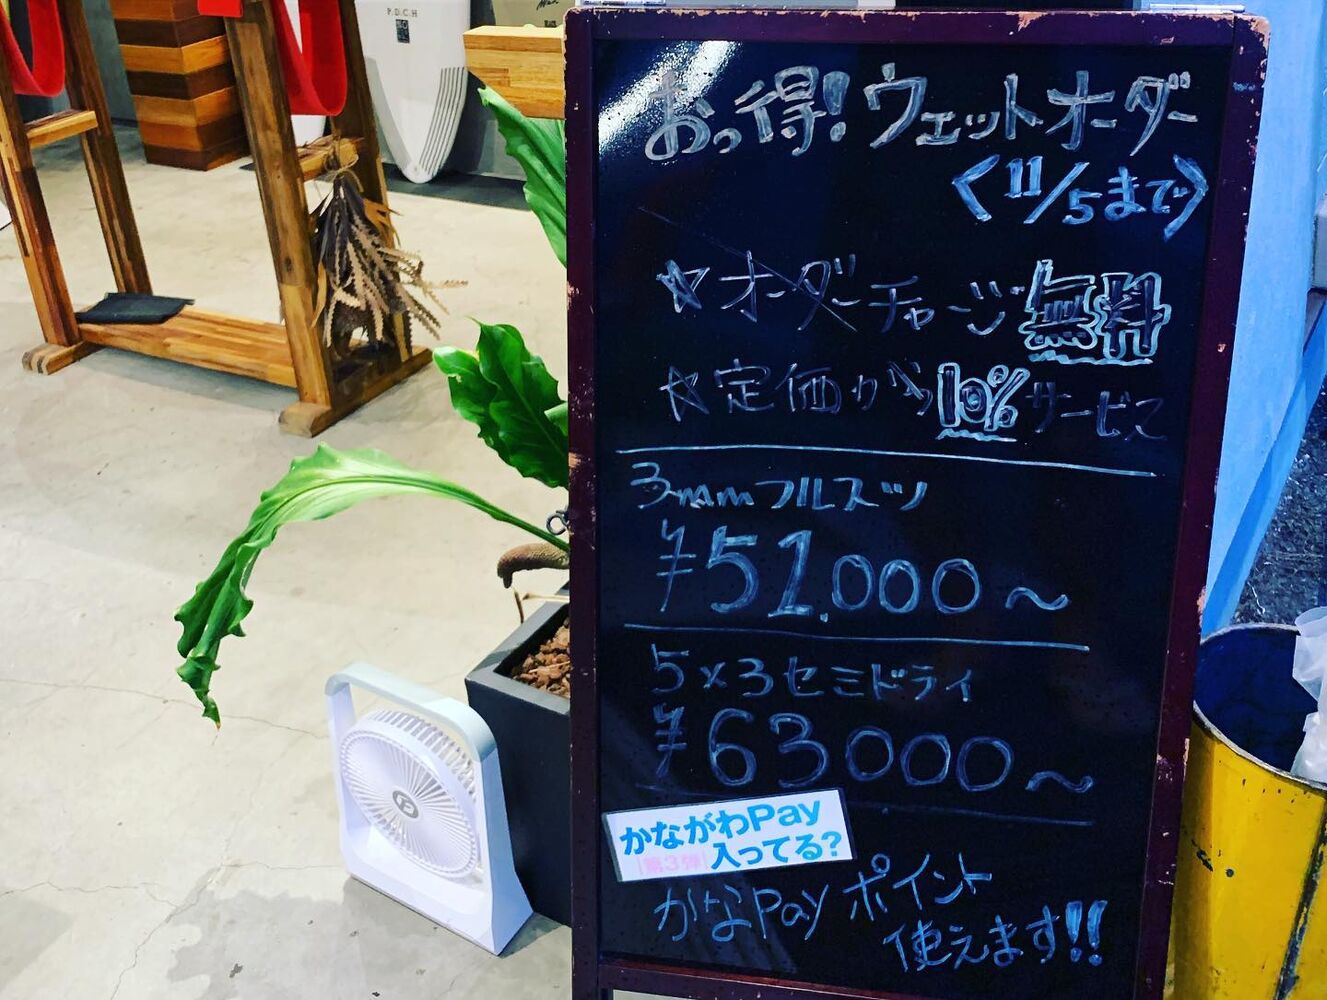 P.D.C.H
おっ得!ウェットオーダー
<11/5まで>
☆オーダーチャージ無料
☆定価から10%サービス
3mmフルスツ
¥51.000~
5×3セミドライ
¥63000~
かながわPay
第3弾 入ってる?
かなPayポイント
使えます!!